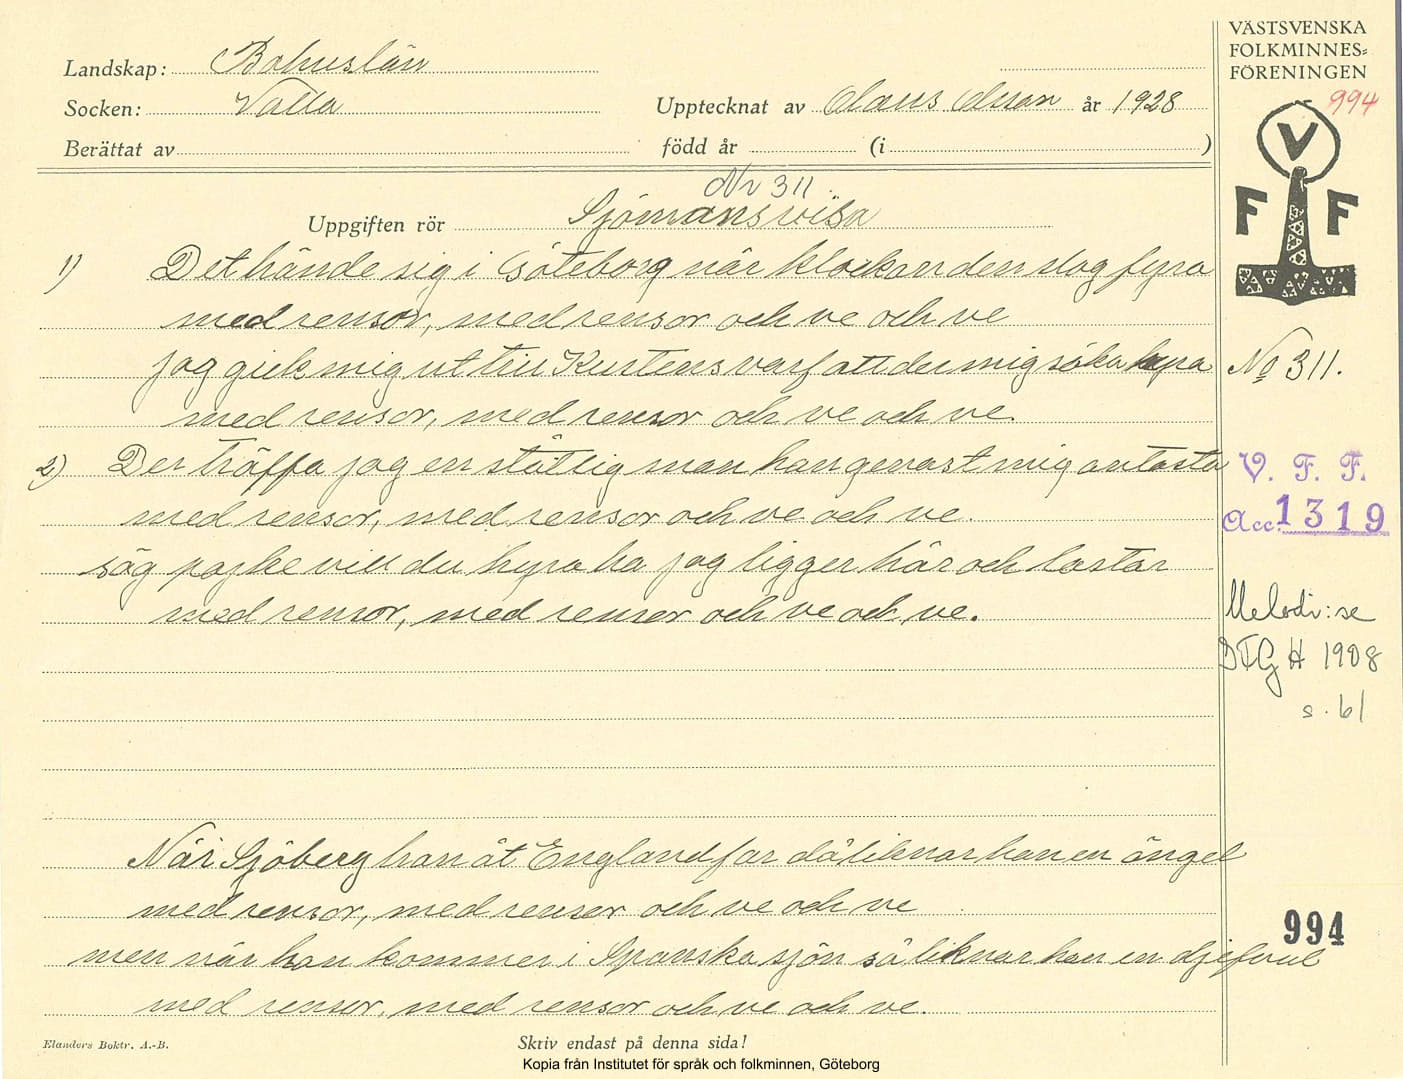 VÄSTSVENSKA
FOLKMINNES-
FÖRENINGEN
994
V
F F
Landskap: Bohuslän
Socken: Valla Upptecknat av Olaus Olsson år 1928
Berättat av född år (i )
Nr 311.
Uppgiften rör Sjömansvisa
1) Det hände sig i Göteborg när klockan den slog fyra
med rensor, med rensor och ve och ve
jag gick mig ut till Kustens varf att der mig söka hyra
med rensor, med rensor och ve och ve.
No 311.
2) Der träffa jag en ståtlig man han genast mig antasta
med rensor, med rensor och ve och ve.
säg pojke vill du hyra ha jag ligger här och lastar
med rensor, med rensor och ve och ve.
V. F. F.
Acc. 1319
Melodi: se
DFG H 1908
s. 61
När Sjöberg han åt England far då liknar han en ängel
med rensor, med rensor och ve och ve
men när han kommer i Spanska sjön så liknar han en djefvul
med rensor, med rensor och ve och ve.
994
Elanders Boktr. A.-B.
Skriv endast på denna sida!
Kopia från Institutet för språk och folkminnen, Göteborg